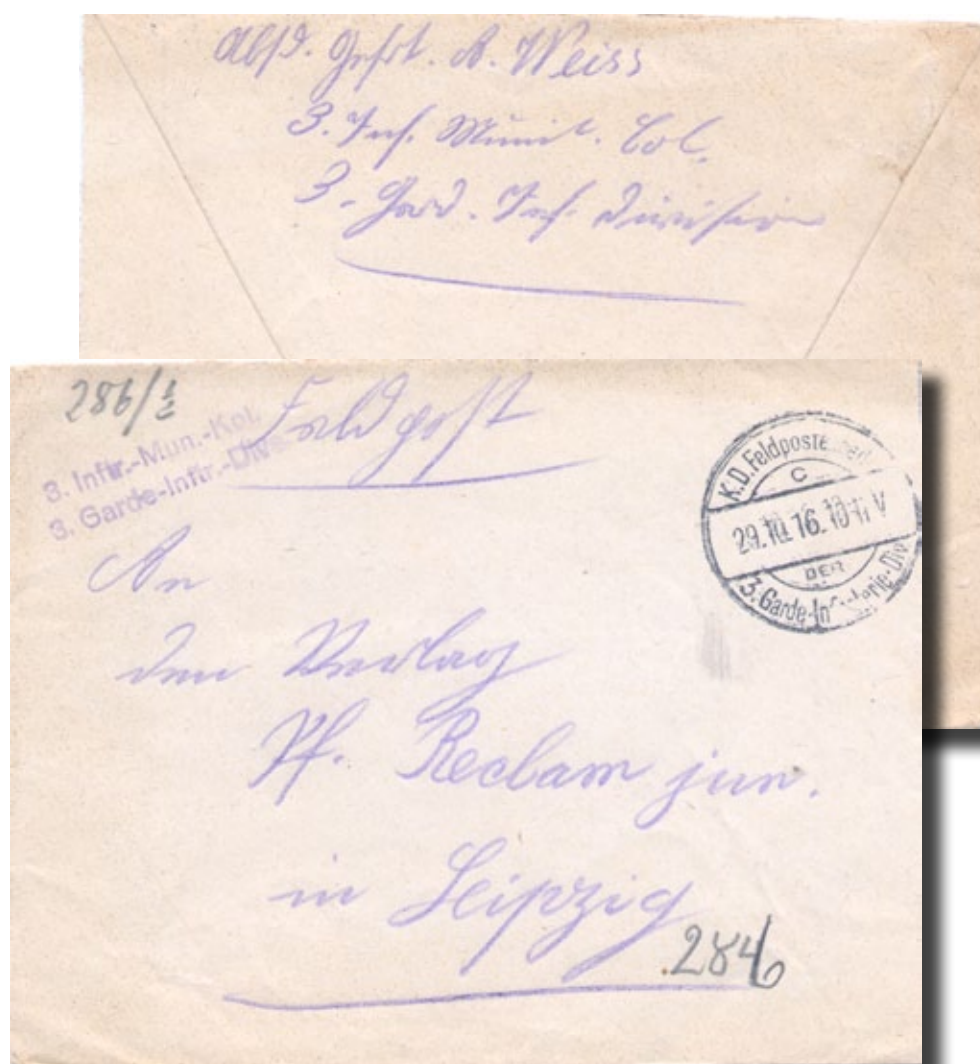 Absd. Gefrt. A. Weiss
3. Inf. Munit. Col.
3. Gard. Inf. Division
286/
Feldpost
3. Inftr.-Mun.-Kol.
3. Garde-Inftr.-Divis
K.D. Feldposte
C
29.10.16. 10-11 V
DER
3. Garde-Infanterie-Div
An
den Verlag
Pf. Reclam jun.
in Leipzig
2846